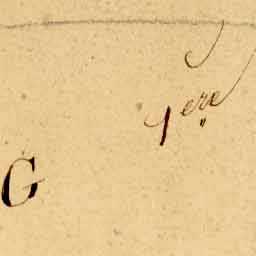 1ere
G